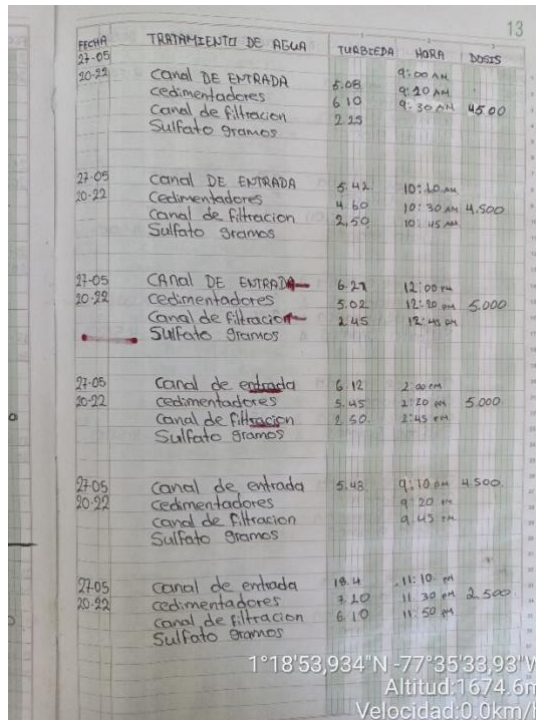 13
FECHA TRATAMIENTO DE AGUA TURBIEDA HORA DOSIS
27-05 canal DE ENTRADA 5.08 9:00 AM
20-22 cedimentadores 6 10 9:20 AM
canal de filtracion 2 25 9:30 AM 4500
Sulfato gramos
27-05 canal DE ENTRADA 5.42 10:10 AM
20-22 Cedimentadores 4 60 10:30 AM 4.500
canal de filtracion 2,50 10:45 AM
Sulfato gramos
27-05 CANAL DE ENTRADA 6.21 12:00 PM
20-22 cedimentadores 5.02 12:20 PM 5.000
Canal de filtracion 2.45 12:45 PM
Sulfato gramos
27-05 canal de entrada 6.12 2:00 PM
20-22 cedimentadores 5.45 2:20 PM 5.000
canal de filtracion 2 50 2:45 PM
Sulfato gramos
27-05 canal de entrada 5.43 9:10 PM 4.500
20-22 cedimentadores 9:20 PM
canal de filtracion 9.45 PM
Sulfato gramos
27-05 canal de entrada 18.4 11:10 PM
20-22 cedimentadores 7.20 11:30 PM 2.500
canal de filtracion 6 10 11:50 PM
Sulfato gramos
1°18'53,934"N -77°35'33,93"W
Altitud:1674.6m
Velocidad:0.0km/h